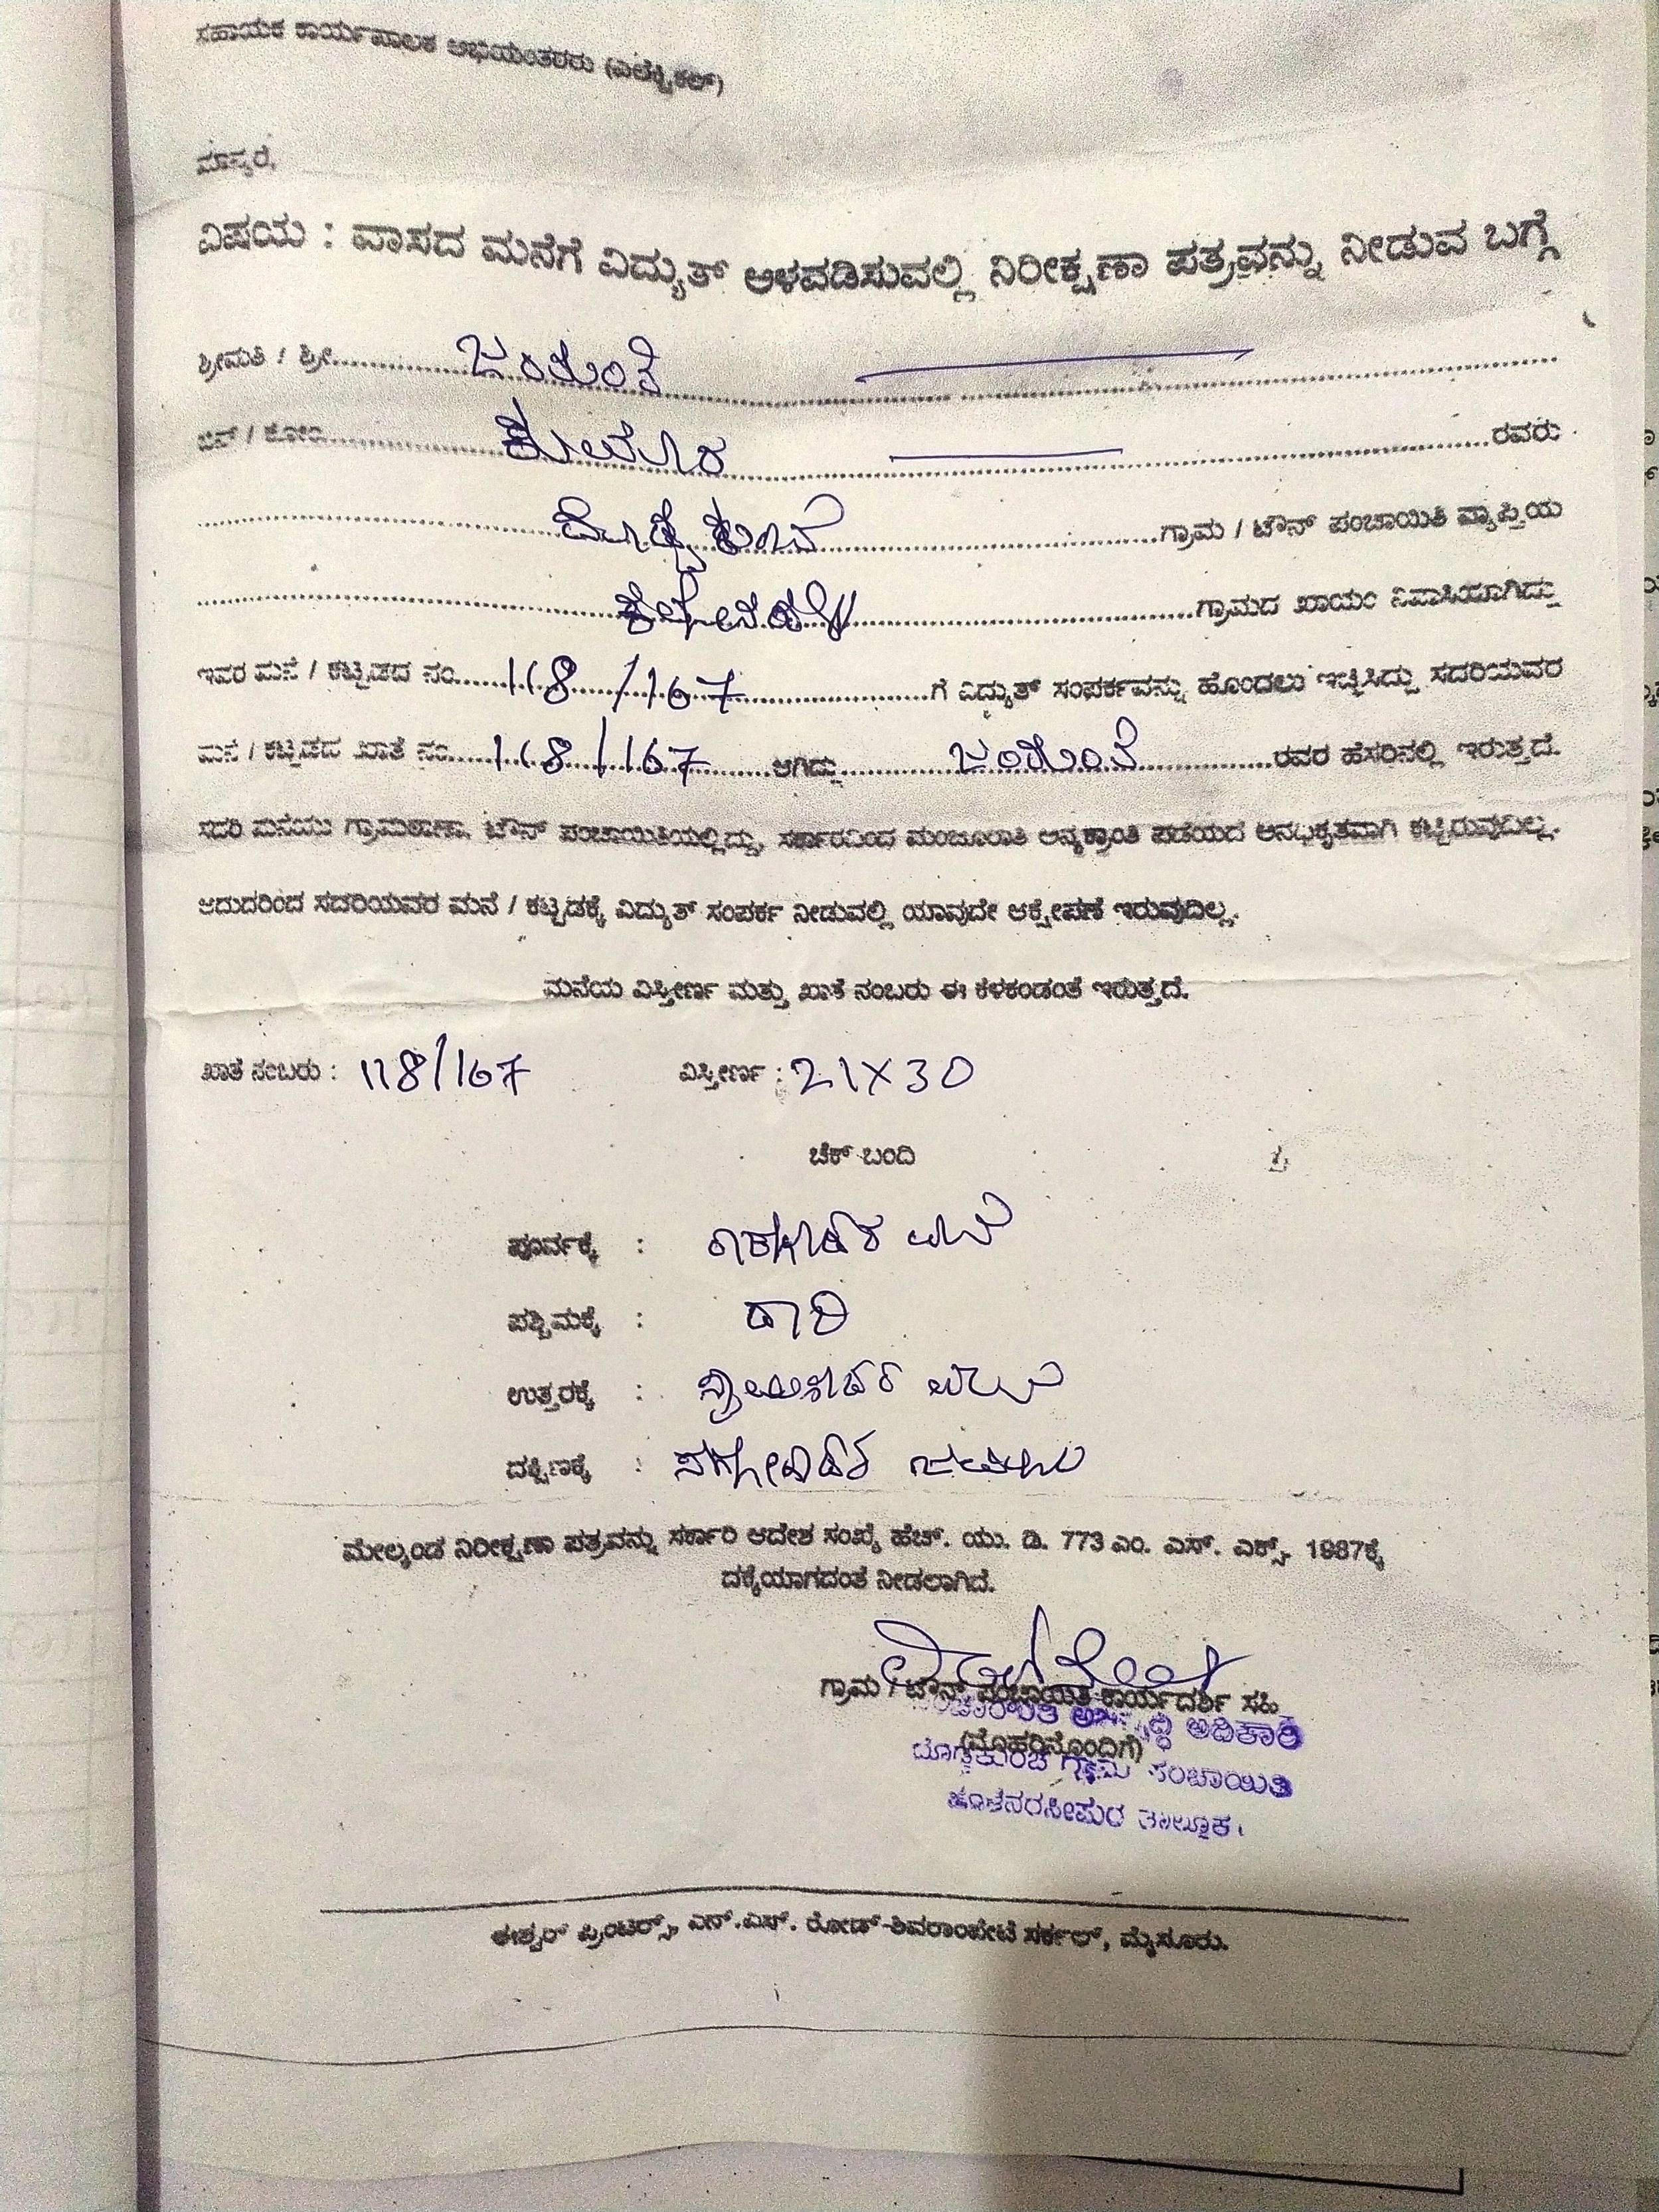 ಸಹಾಯಕ ಕಾರ್ಯಪಾಲಕ ಅಭಿಯಂತರರು (ಎಲೆಕ್ಟ್ರಿಕಲ್)
ಮಾನ್ಯರೆ,
ವಿಷಯ : ವಾಸದ ಮನೆಗೆ ವಿದ್ಯುತ್ ಅಳವಡಿಸುವಲ್ಲಿ ನಿರೀಕ್ಷಣಾ ಪತ್ರವನ್ನು ನೀಡುವ ಬಗ್ಗೆ
ಶ್ರೀಮತಿ / ಶ್ರೀ
ಬಿನ್ / ಕೋಂ ಕುಮಾರ ರವರು
ದೊಡ್ಡಕುಂಚೆ ಗ್ರಾಮ / ಟೌನ್ ಪಂಚಾಯಿತಿ ವ್ಯಾಪ್ತಿಯ
ಗ್ರಾಮದ ಖಾಯಂ ನಿವಾಸಿಯಾಗಿದ್ದು
ಇವರ ಮನೆ / ಕಟ್ಟಡದ ನಂ. 118 / 167 ಗೆ ವಿದ್ಯುತ್ ಸಂಪರ್ಕವನ್ನು ಹೊಂದಲು ಇಚ್ಛಿಸಿದ್ದು ಸದರಿಯವರ
ಮನೆ / ಕಟ್ಟಡದ ಖಾತೆ ನಂ. 118 / 167 ಆಗಿದ್ದು ರವರ ಹೆಸರಿನಲ್ಲಿ ಇರುತ್ತದೆ.
ಸದರಿ ಮನೆಯು ಗ್ರಾಮಠಾಣಾ, ಟೌನ್ ಪಂಚಾಯಿತಿಯಲ್ಲಿದ್ದು, ಸರ್ಕಾರದಿಂದ ಮಂಜೂರಾತಿ ಅನ್ಯಕ್ರಾಂತಿ ಪಡೆಯದೆ ಅನಧಿಕೃತವಾಗಿ ಕಟ್ಟಿರುವುದಿಲ್ಲ.
ಆದುದರಿಂದ ಸದರಿಯವರ ಮನೆ / ಕಟ್ಟಡಕ್ಕೆ ವಿದ್ಯುತ್ ಸಂಪರ್ಕ ನೀಡುವಲ್ಲಿ ಯಾವುದೇ ಆಕ್ಷೇಪಣೆ ಇರುವುದಿಲ್ಲ.
ಮನೆಯ ವಿಸ್ತೀರ್ಣ ಮತ್ತು ಖಾತೆ ನಂಬರು ಈ ಕೆಳಕಂಡಂತೆ ಇರುತ್ತದೆ.
ಖಾತೆ ನಂಬರು : 118/167 ವಿಸ್ತೀರ್ಣ : 21X30
ಚೆಕ್ ಬಂದಿ
ಪೂರ್ವಕ್ಕೆ : ಮನೆ
ಪಶ್ಚಿಮಕ್ಕೆ : ದಾರಿ
ಉತ್ತರಕ್ಕೆ :
ದಕ್ಷಿಣಕ್ಕೆ :
ಮೇಲ್ಕಂಡ ನಿರೀಕ್ಷಣಾ ಪತ್ರವನ್ನು ಸರ್ಕಾರಿ ಆದೇಶ ಸಂಖ್ಯೆ ಹೆಚ್. ಯು. ಡಿ. 773 ಎಂ. ಎಸ್. ಎಕ್ಸ್. 1987ಕ್ಕೆ
ದಕ್ಕೆಯಾಗದಂತೆ ನೀಡಲಾಗಿದೆ.
ಗ್ರಾಮ / ಟೌನ್ ಪಂಚಾಯಿತಿ ಕಾರ್ಯದರ್ಶಿ ಸಹಿ
(ಮೊಹರಿನೊಂದಿಗೆ)
ಪಂಚಾಯಿತಿ ಅಭಿವೃದ್ಧಿ ಅಧಿಕಾರಿ
ದೊಡ್ಡಕುಂಚೆ ಗ್ರಾಮ ಪಂಚಾಯಿತಿ
ಹೊಳೆನರಸೀಪುರ ತಾಲ್ಲೂಕು.
ಈಶ್ವರ್ ಪ್ರಿಂಟರ್ಸ್, ಎನ್.ಎಸ್. ರೋಡ್-ಶಿವರಾಂಪೇಟೆ ಸರ್ಕಲ್, ಮೈಸೂರು.